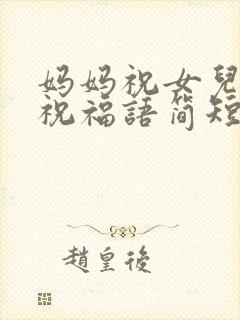 妈妈祝女兒
祝福語简短
趙皇後